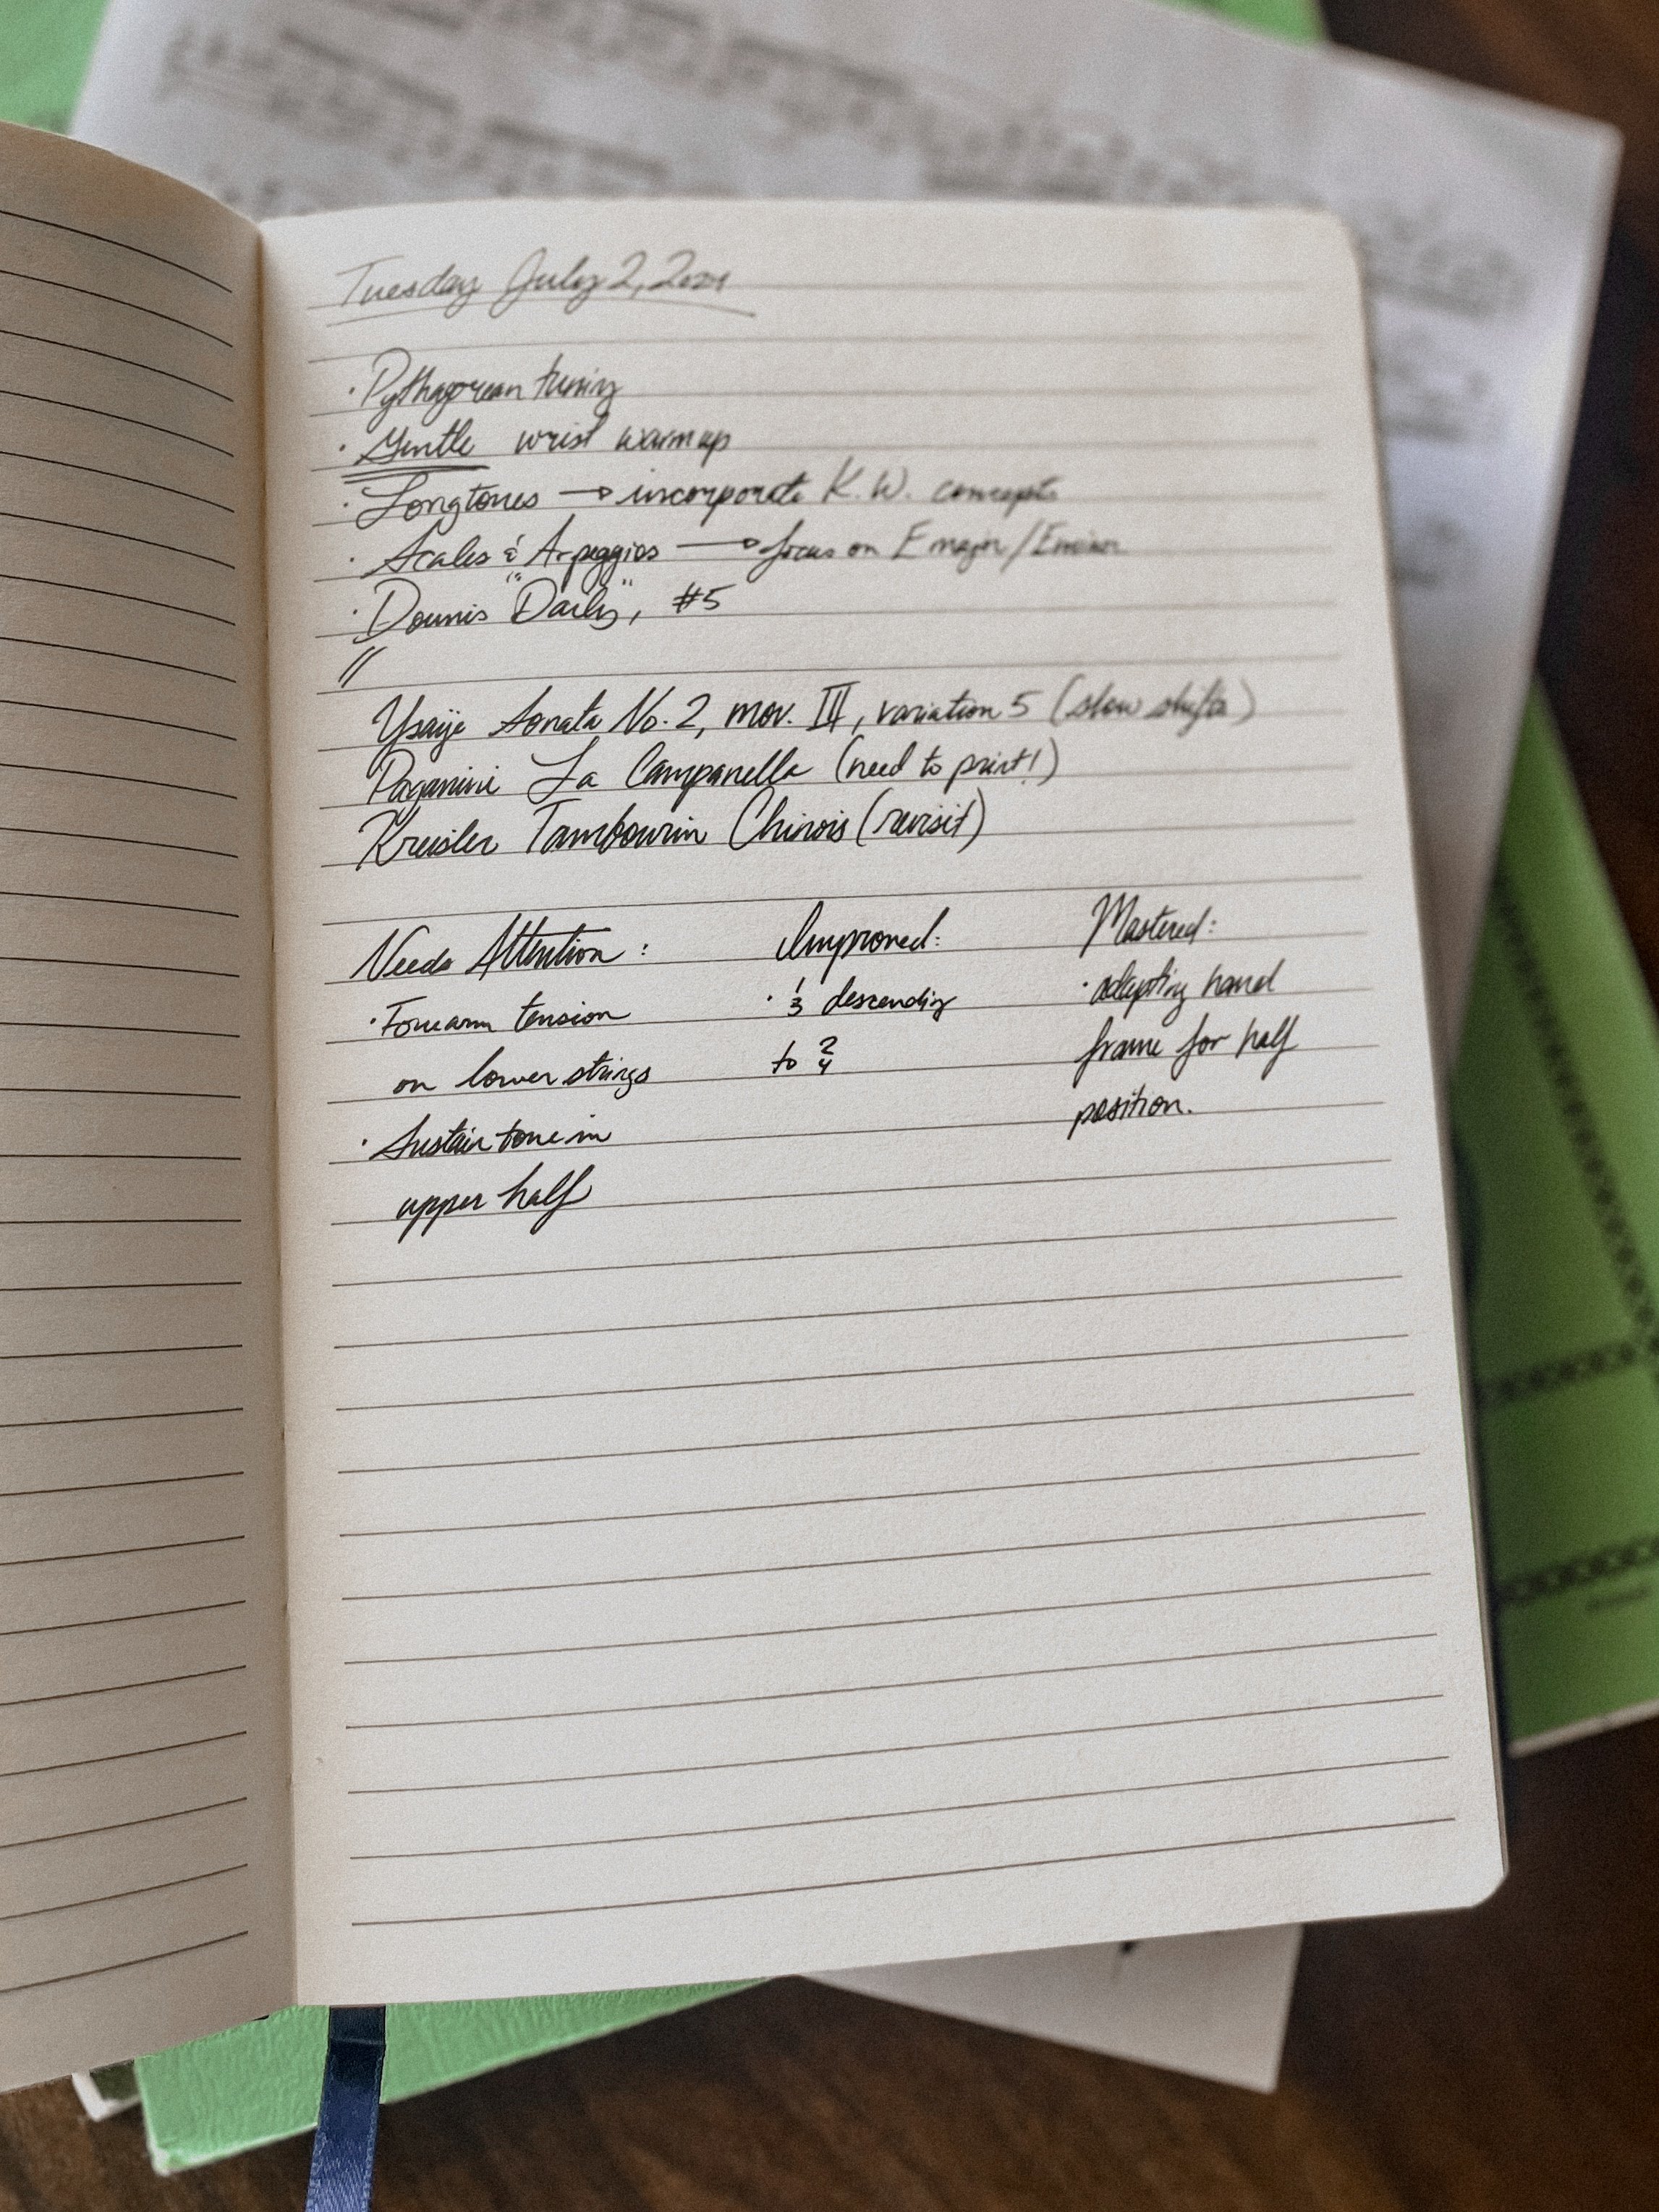 Tuesday July 2, 2024
· Pythagorean tuning
· Gentle wrist warmup
· Longtones → incorporate K.W. concepts
· Scales & Arpeggios → focus on E major/E minor
· Dounis "Daily", #5
//
Ysaije Sonata No. 2, mov. III, variation 5 (slow shifts)
Paganini La Campanella (need to print!)
Kreisler Tambourin Chinois (revisit)
Needs Attention: Improved: Mastered:
· Forearm tension · 1/3 descending · adapting hand
on lower strings to 2/4 frame for half
· Sustain tone in position.
upper half